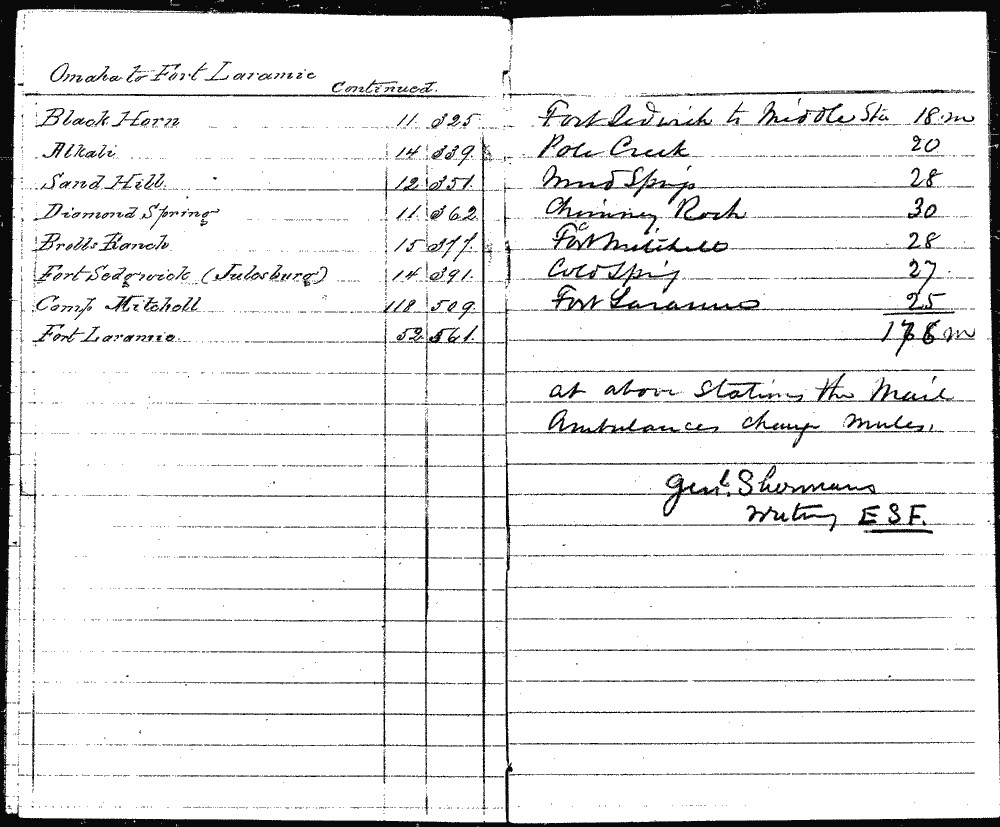 Omaha to Fort Laramie
Continued.
Black Horn 11 325
Alkali 14 339
Sand Hill 12 351
Diamond Spring 11 362
Brolls Ranch 15 377
Fort Sedgwick (Julesburg) 14 391
Camp Mitchell 118 509
Fort Laramie 52 561
Fort Sedwick to Middle Sta 18 m
Pole Creek 20
Mud Springs 28
Chimney Rock 30
Fort Mitchell 28
Cold Spring 27
Fort Laramie 25
176 m
at above Stations the Mail
Ambulances change mules.
Genl. Shermans
writing E S F.